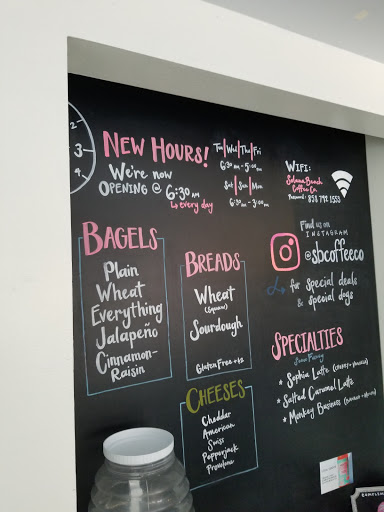 2
3
4
NEW HOURS!
We're now
OPENING @ 6:30 AM
↳ every day
Tue/Wed/Thu/Fri
6:30 AM - 5:00 PM
Sat/Sun/Mon
6:30 AM - 3:00 PM
WIFI:
Solana Beach
Coffee Co.
Password: 858 794 1553
Find us on
INSTAGRAM
@sbcoffeeco
for special deals
& special dogs
BAGELS
Plain
Wheat
Everything
Jalapeño
Cinnamon-
Raisin
BREADS
Wheat
Sourdough
Gluten Free +1.25
CHEESES
Cheddar
American
Swiss
Pepperjack
Provolone
SPECIALTIES
* Sophia Latte
* Salted Caramel Latte
* Monkey Business